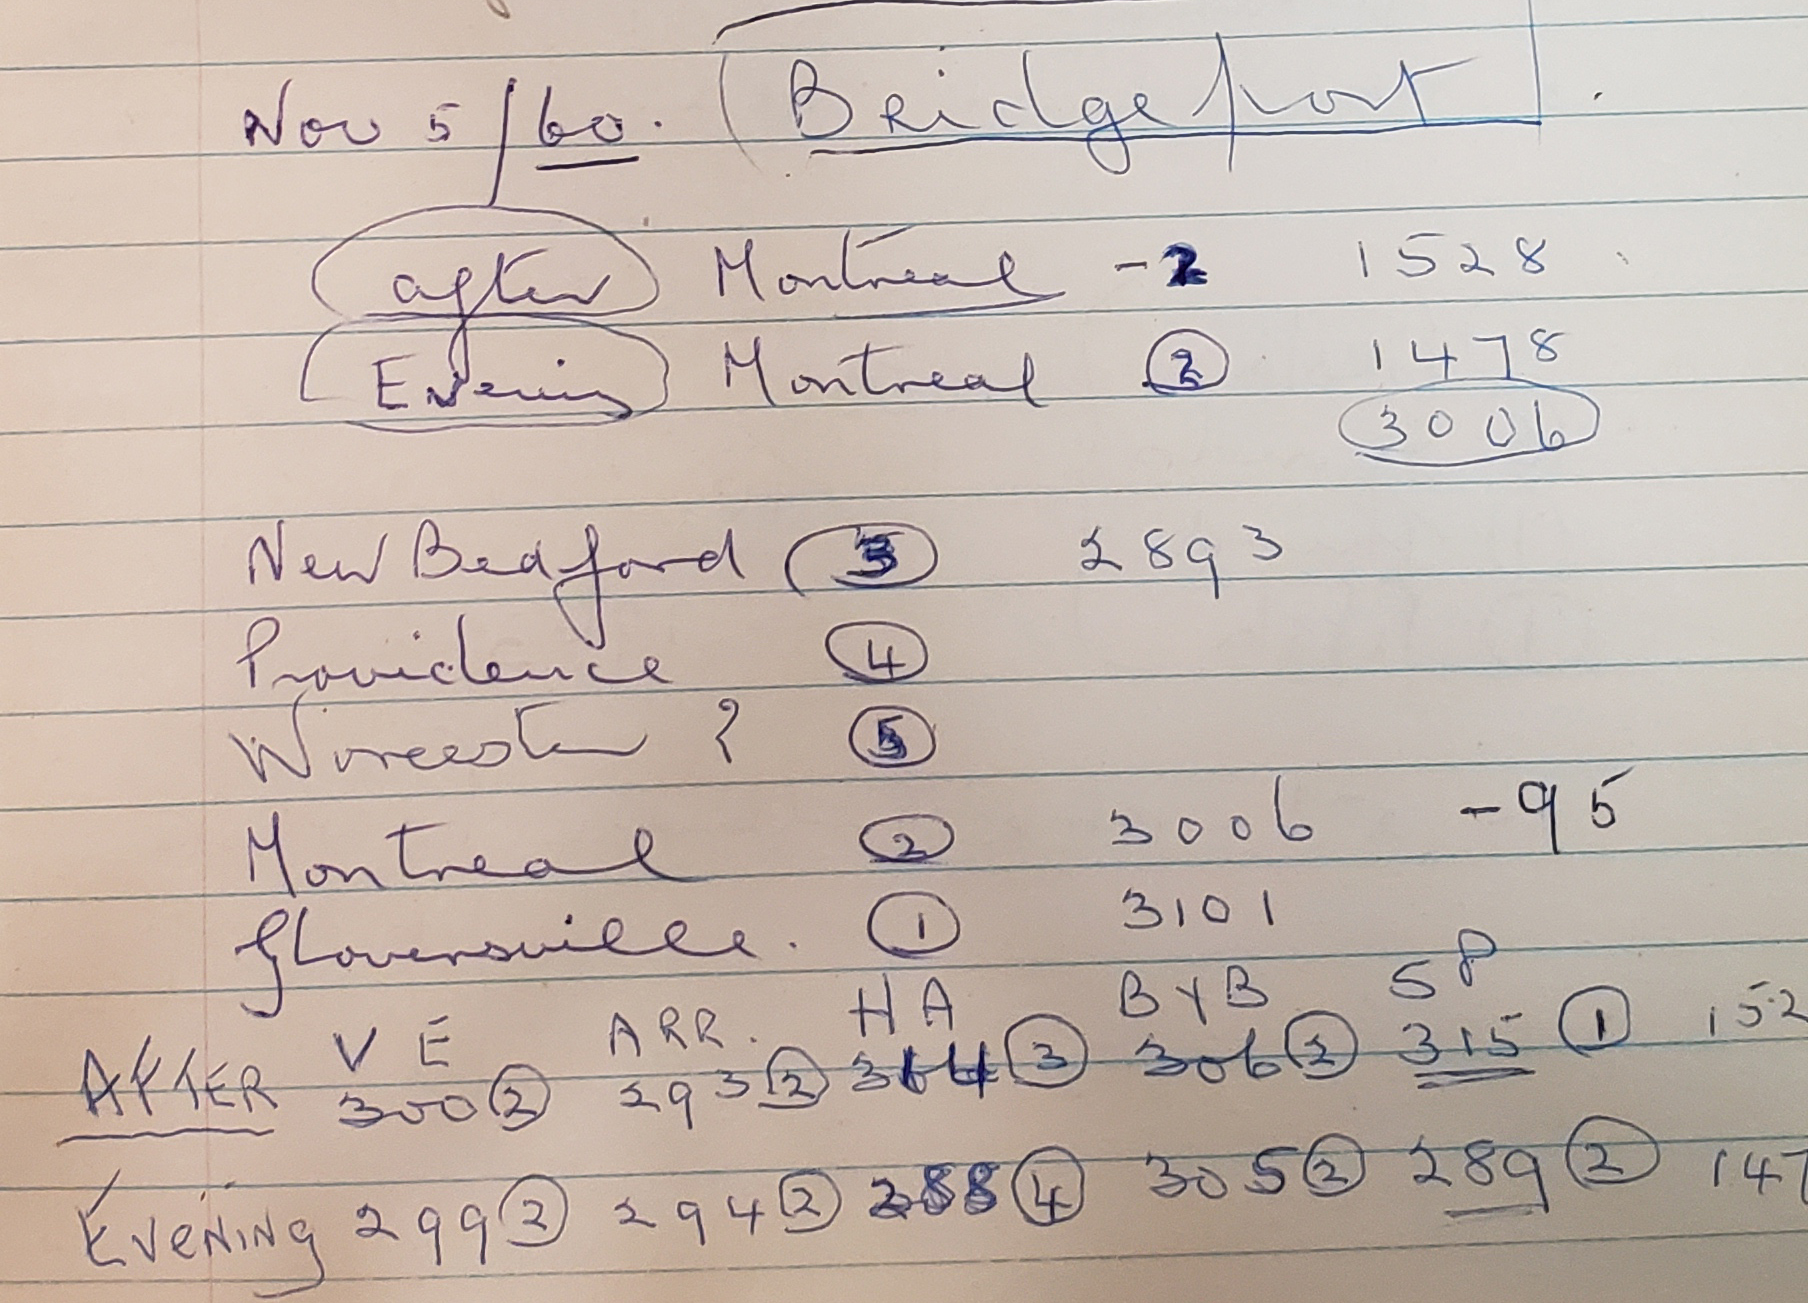 Nov 5/60. Bridgeport
after Montreal - 2 1528
Evening Montreal 2 1478
3006
New Bedford 3 2893
Providence 4
Worcester ? 5
Montreal 2 3006 -95
Gloversville. 1 3101
VE ARR. HA BYB SP
AFTER 300 2 293 2 314 3 306 2 315 1 152
Evening 299 2 294 2 288 4 305 2 289 2 147